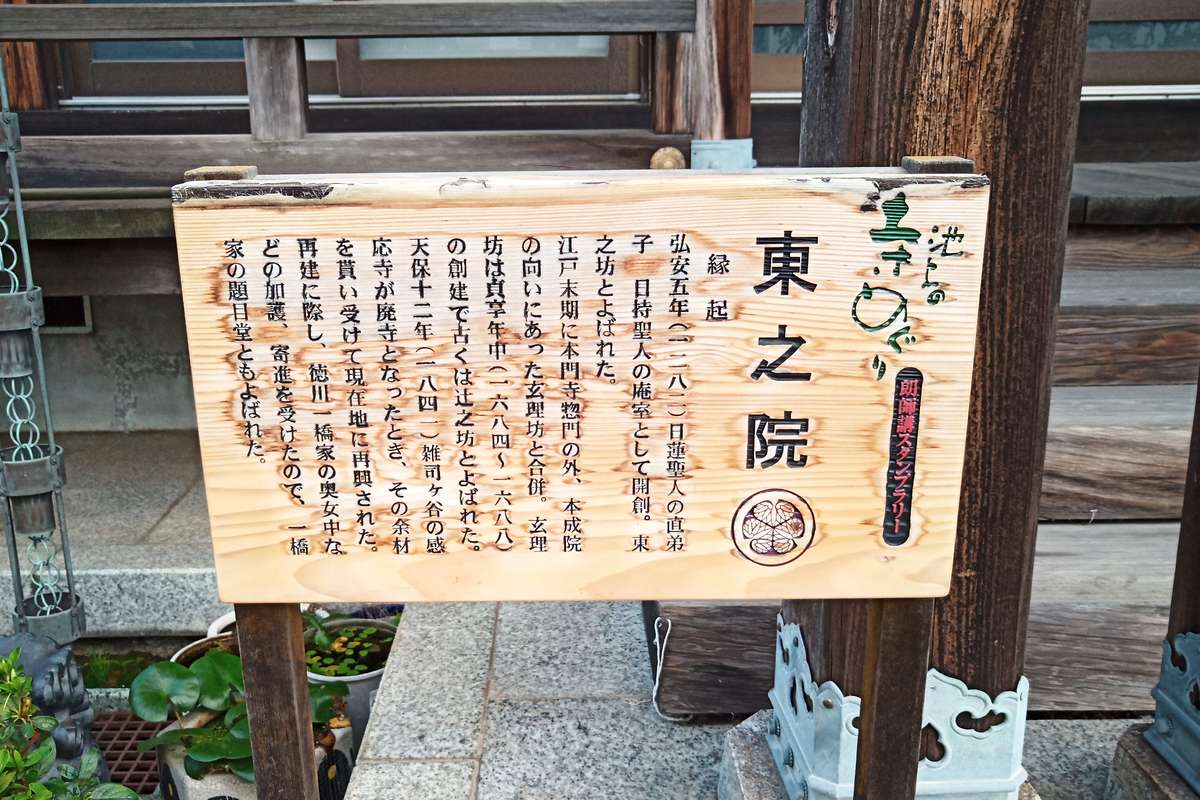 池上の
寺めぐり
朗師講スタンプラリー
東之院
縁起
弘安五年(一二八二)日蓮聖人の直弟
子 日持聖人の庵室として開創。東
之坊とよばれた。
江戸末期に本門寺惣門の外、本成院
の向いにあった玄理坊と合併。玄理
坊は貞享年中(一六八四〜一六八八)
の創建で古くは辻之坊とよばれた。
天保十二年(一八四一)雑司ヶ谷の感
応寺が廃寺となったとき、その余材
を貰い受けて現在地に再興された。
再建に際し、徳川一橋家の奥女中な
どの加護、寄進を受けたので、一橋
家の題目堂ともよばれた。